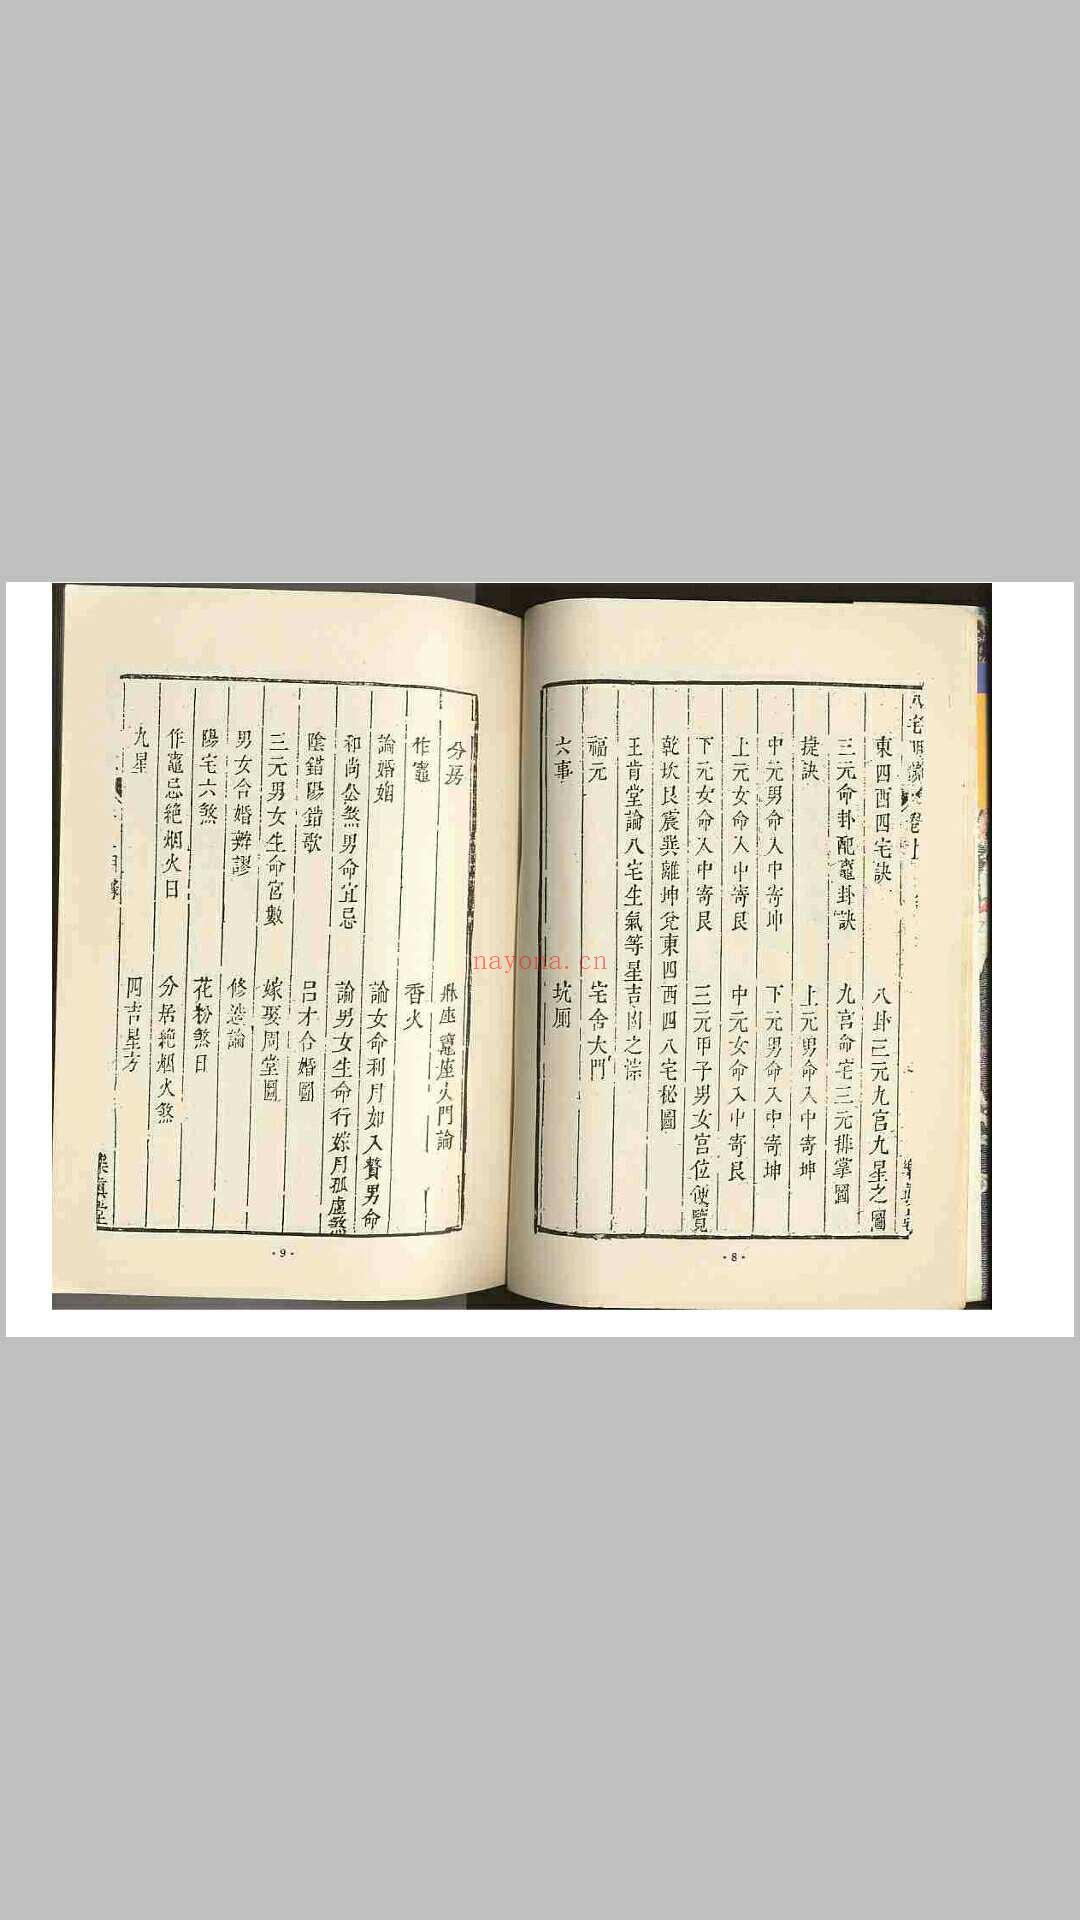 東四西四宅訣　八卦三元九宫九星之圖
三元命卦配竈卦訣　九宫命宅三元排掌圖
捷訣　上元男命入中寄坤
中元男命入中寄坤　下元男命入中寄坤
上元女命入中寄艮　中元女命入中寄艮
下元女命入中寄艮　三元甲子男女宫位便覽
乾坎艮震巽離坤兌東四西四八宅秘圖
王肯堂論八宅生氣等星吉凶之宗
福元　宅舍大門
六事　坑厠
·8·
分房　牀座　竈座火門論
作竈　香火
論婚姻　論女命利月如入贅男命
和尚公煞男命宜忌　論男女生命行嫁月孤虛煞
陰錯陽錯歌　呂才合婚圖
三元男女生命宫數　嫁娶周堂圖
男女合婚辨謬　修造論
陽宅六煞　花粉煞日
作竈忌絶烟火日　分居絶烟火煞
九星　四吉星方
樂真堂
·9·
nayona.cn